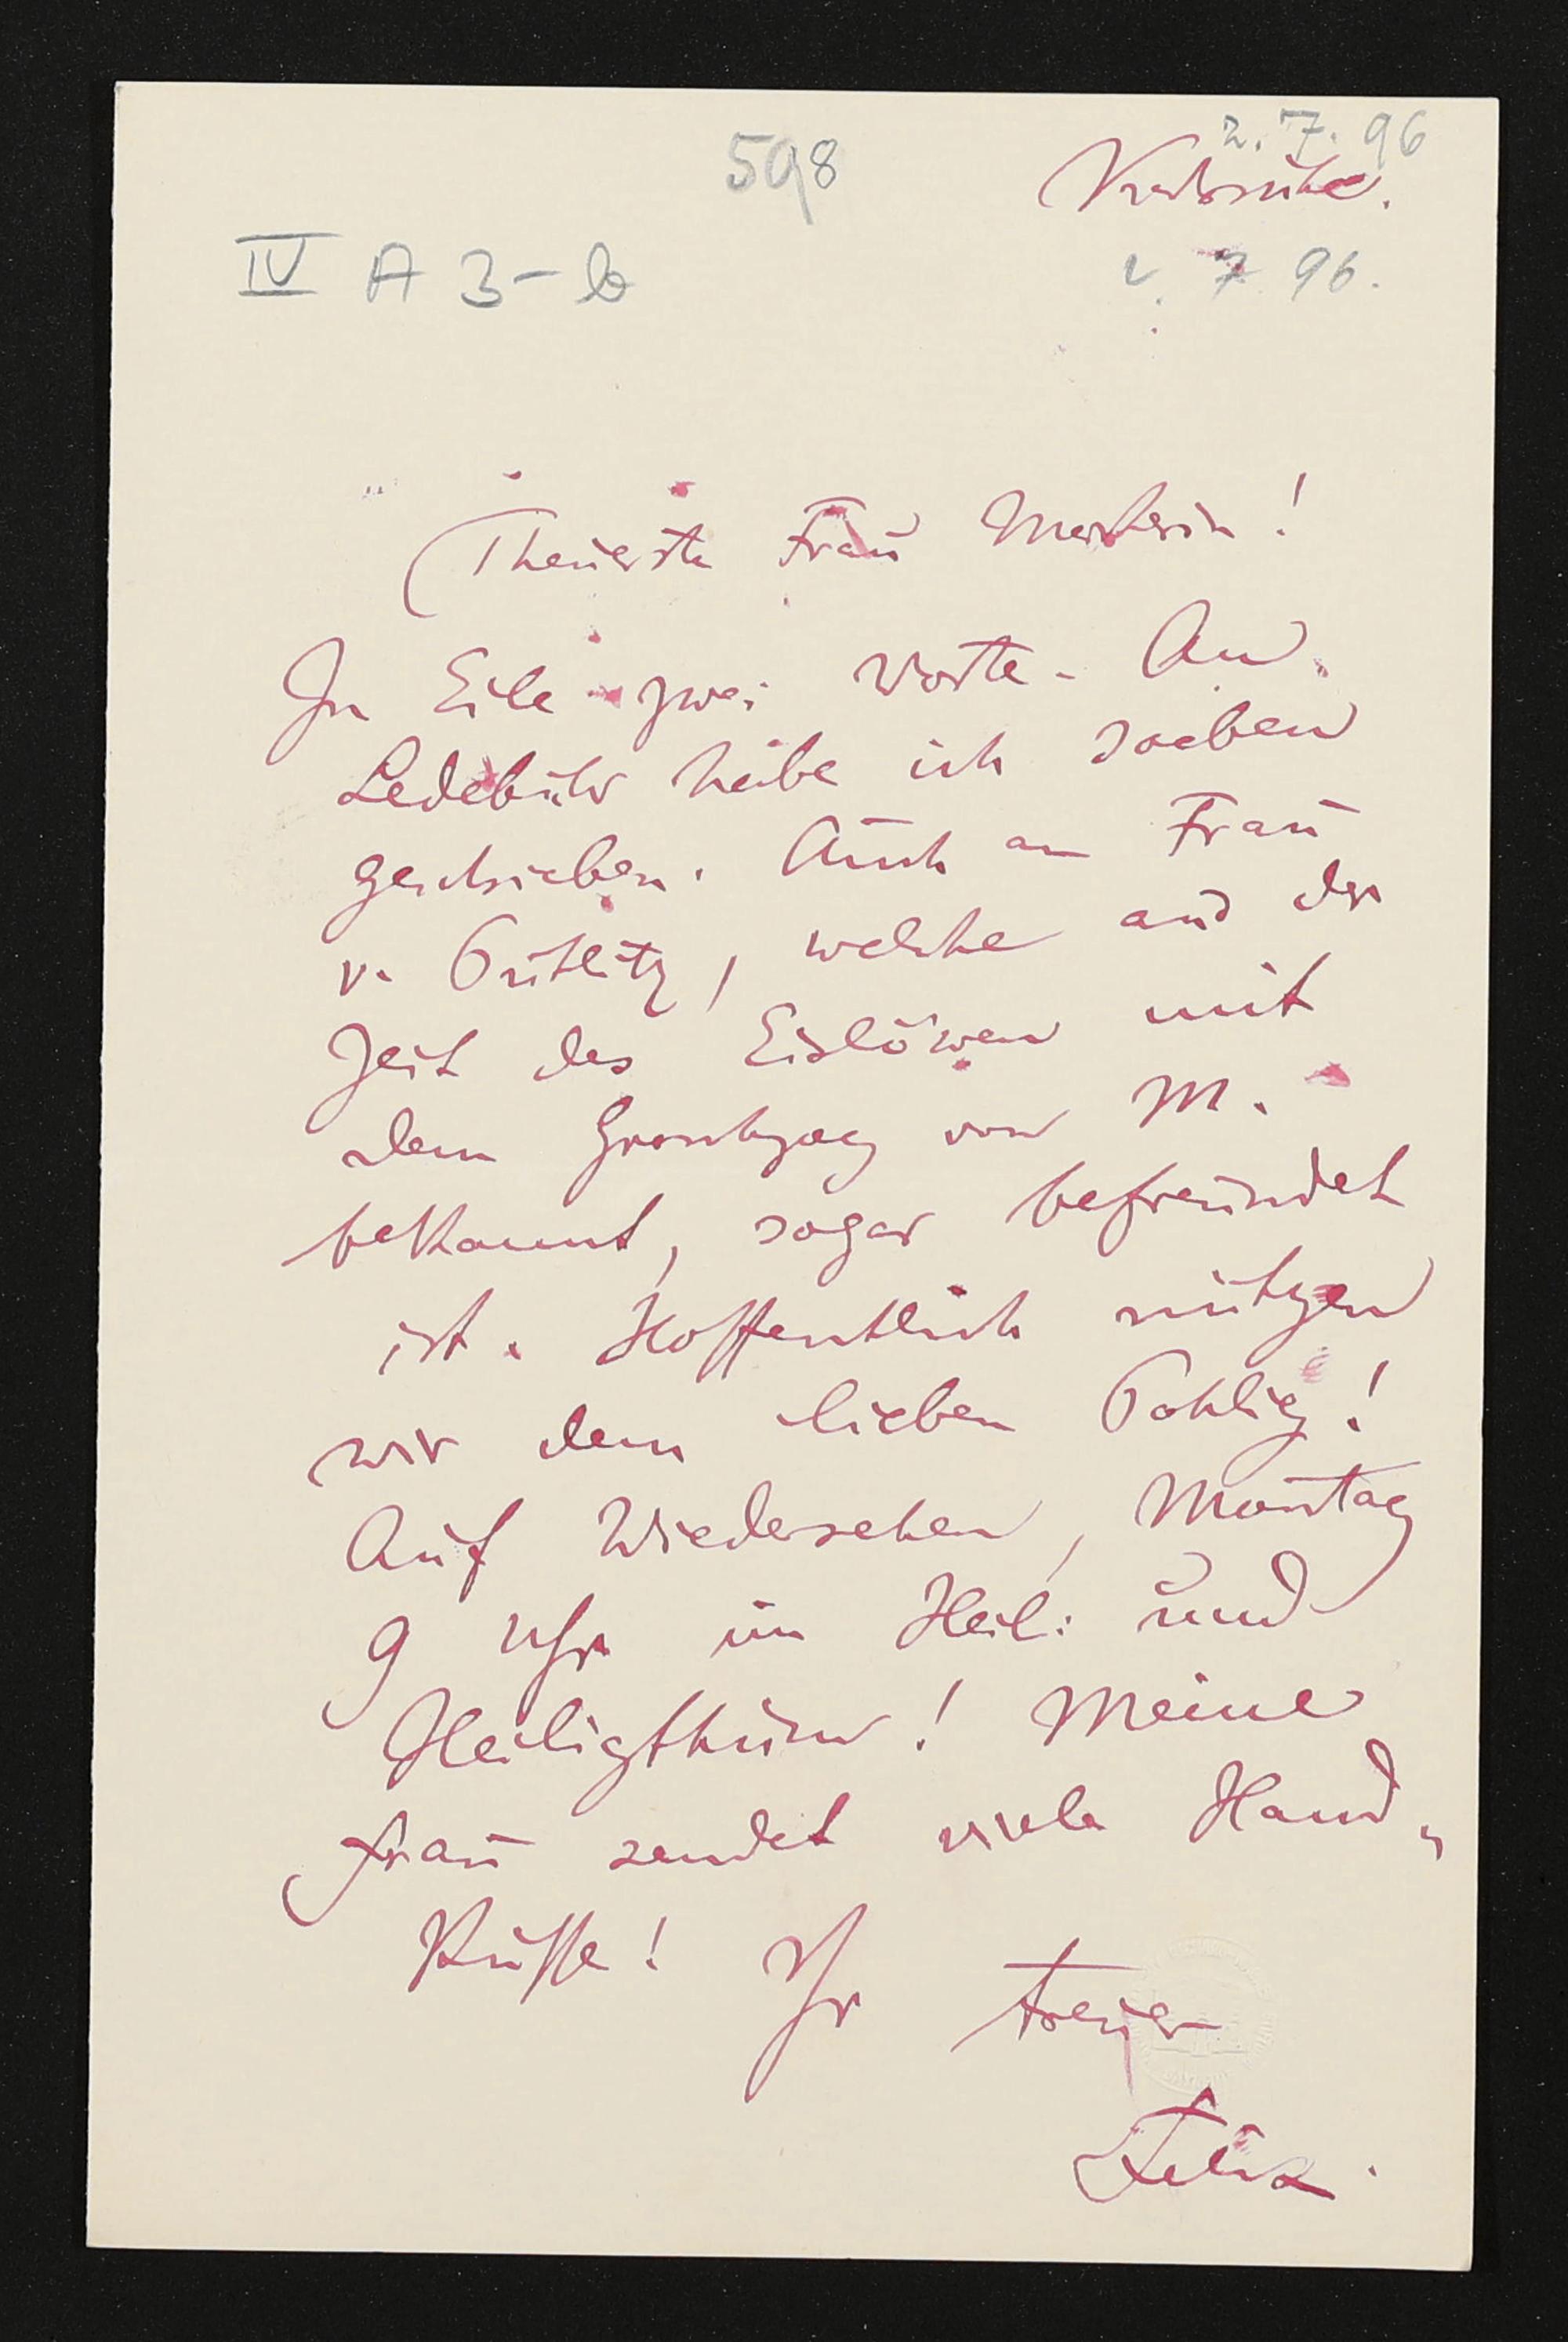 598
2. 7. 96
Karlsruhe.
IV A 3-b
2. 7. 96.
Theuerste Frau Meisterin!
In Eile zwei Worte. An
Ledebuhr habe ich soeben
geschrieben. Auch an Frau
v. Putlitz, welche aus der
Zeit des mit
dem Grosshzog von M.
bekannt, sogar befreundet
ist. Hoffentlich nützen
wir dem lieben Pohlig!
Auf Wiedersehen, Montag
9 Uhr im Heil: und
Heiligthum! Meine
Frau sendet viele Hand-
Küsse! Ihr treuer
Felix.